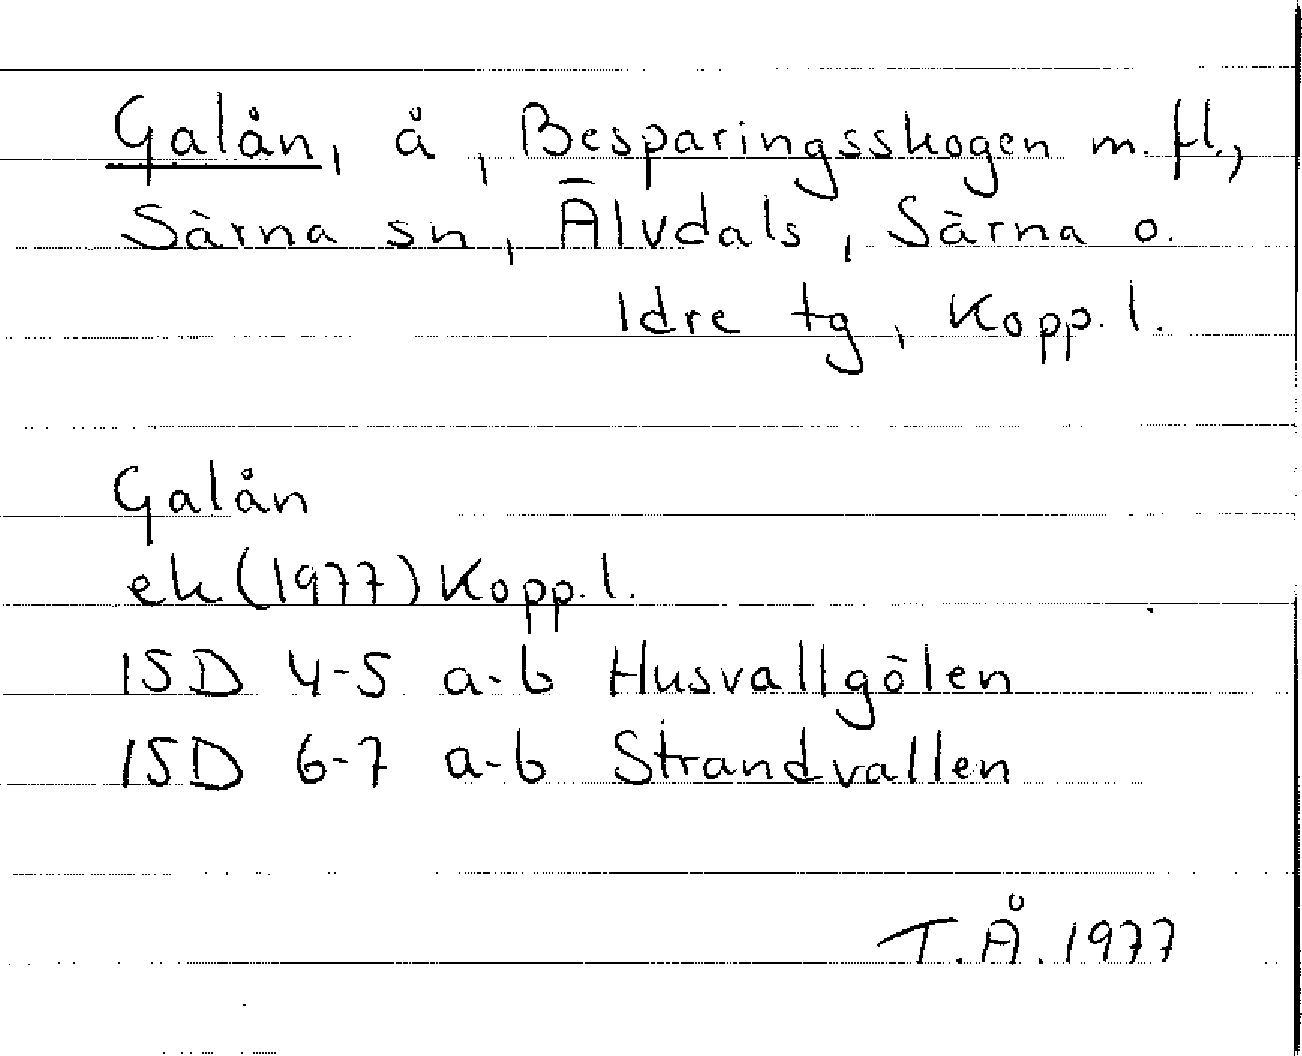 Galån, å, Besparingsskogen m. fl.,
Särna sn, Älvdals, Särna o.
Idre tg, Kopp. l.
Galån
ek (1977) Kopp. l.
15D 4-5 a-b Husvallgölen
15D 6-7 a-b Strandvallen
T.Å. 1977